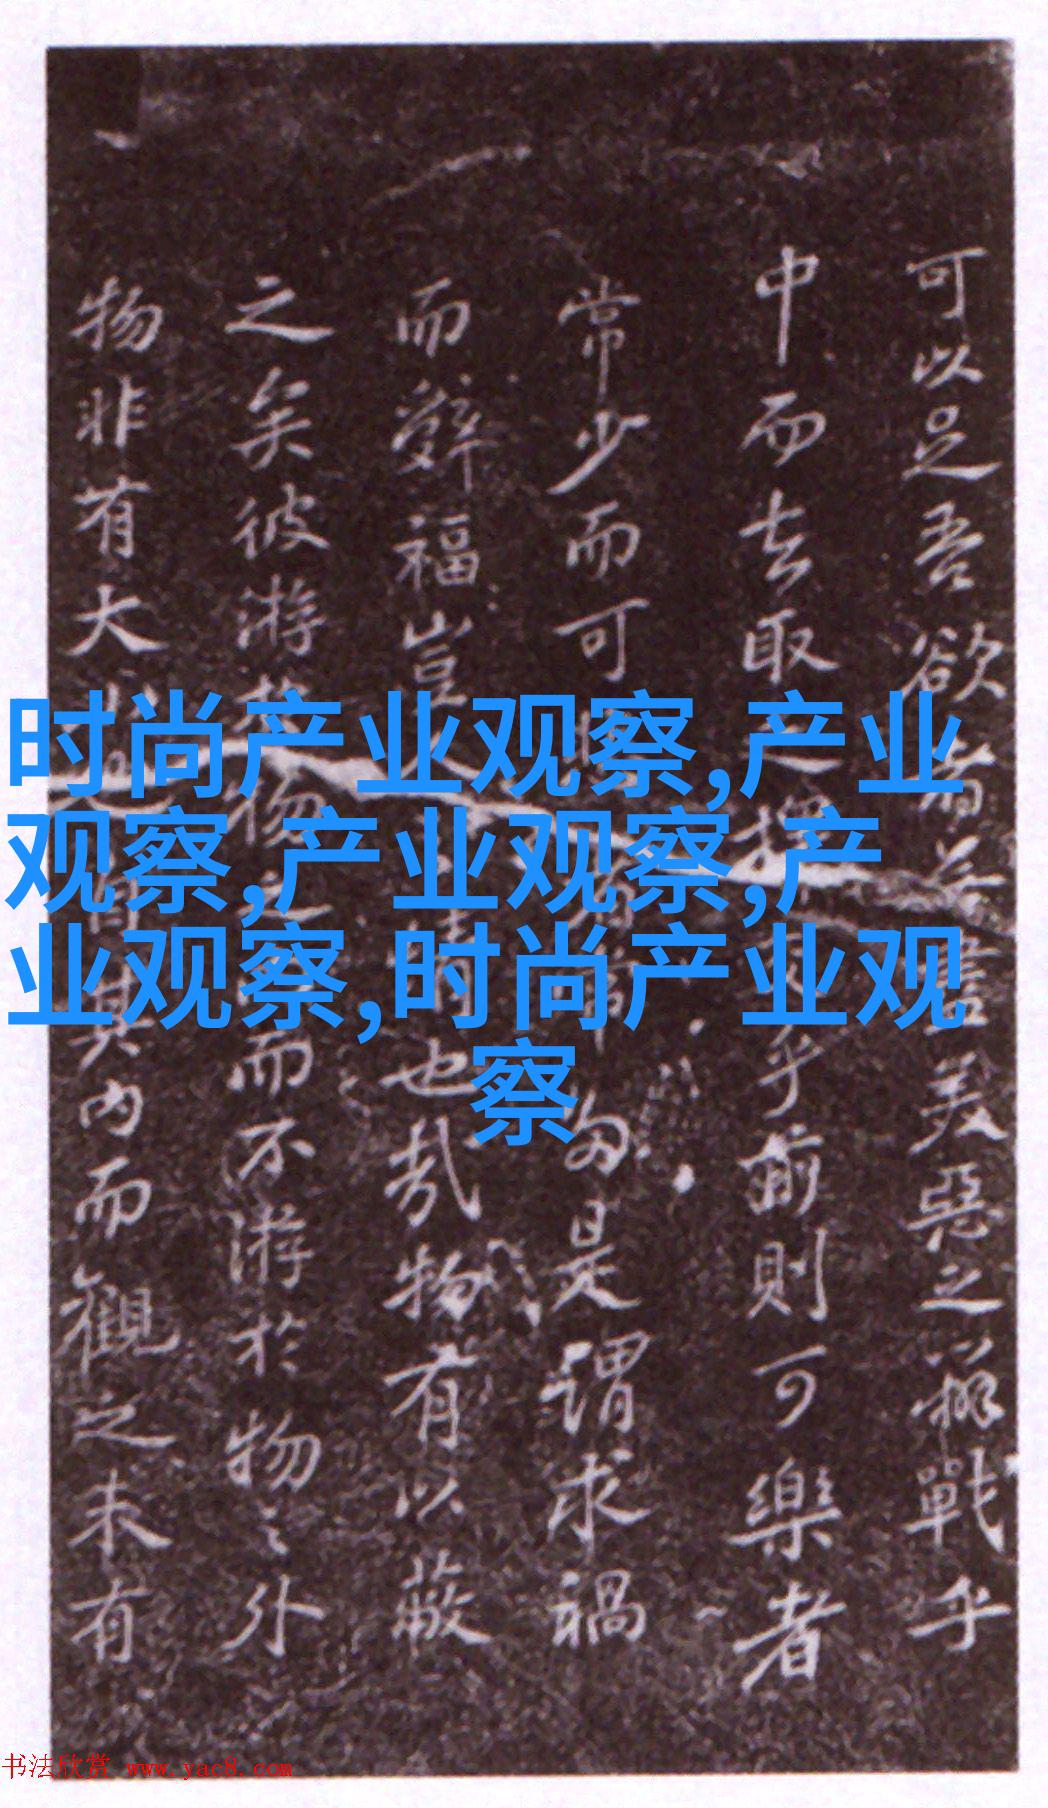 时尚产业观察,产业
观察,产业观察,产
业观察,时尚产业观
察
可以足吾欲者無盡美惡之辨戰乎
中而去取之擇乎前則可樂者
常少而可多是謂求禍
而辭福豈情也哉物有以蔽
之矣彼游於物之而不游於物之外
物非有大自其內而觀之未有
书法欣赏 www.yac8.com